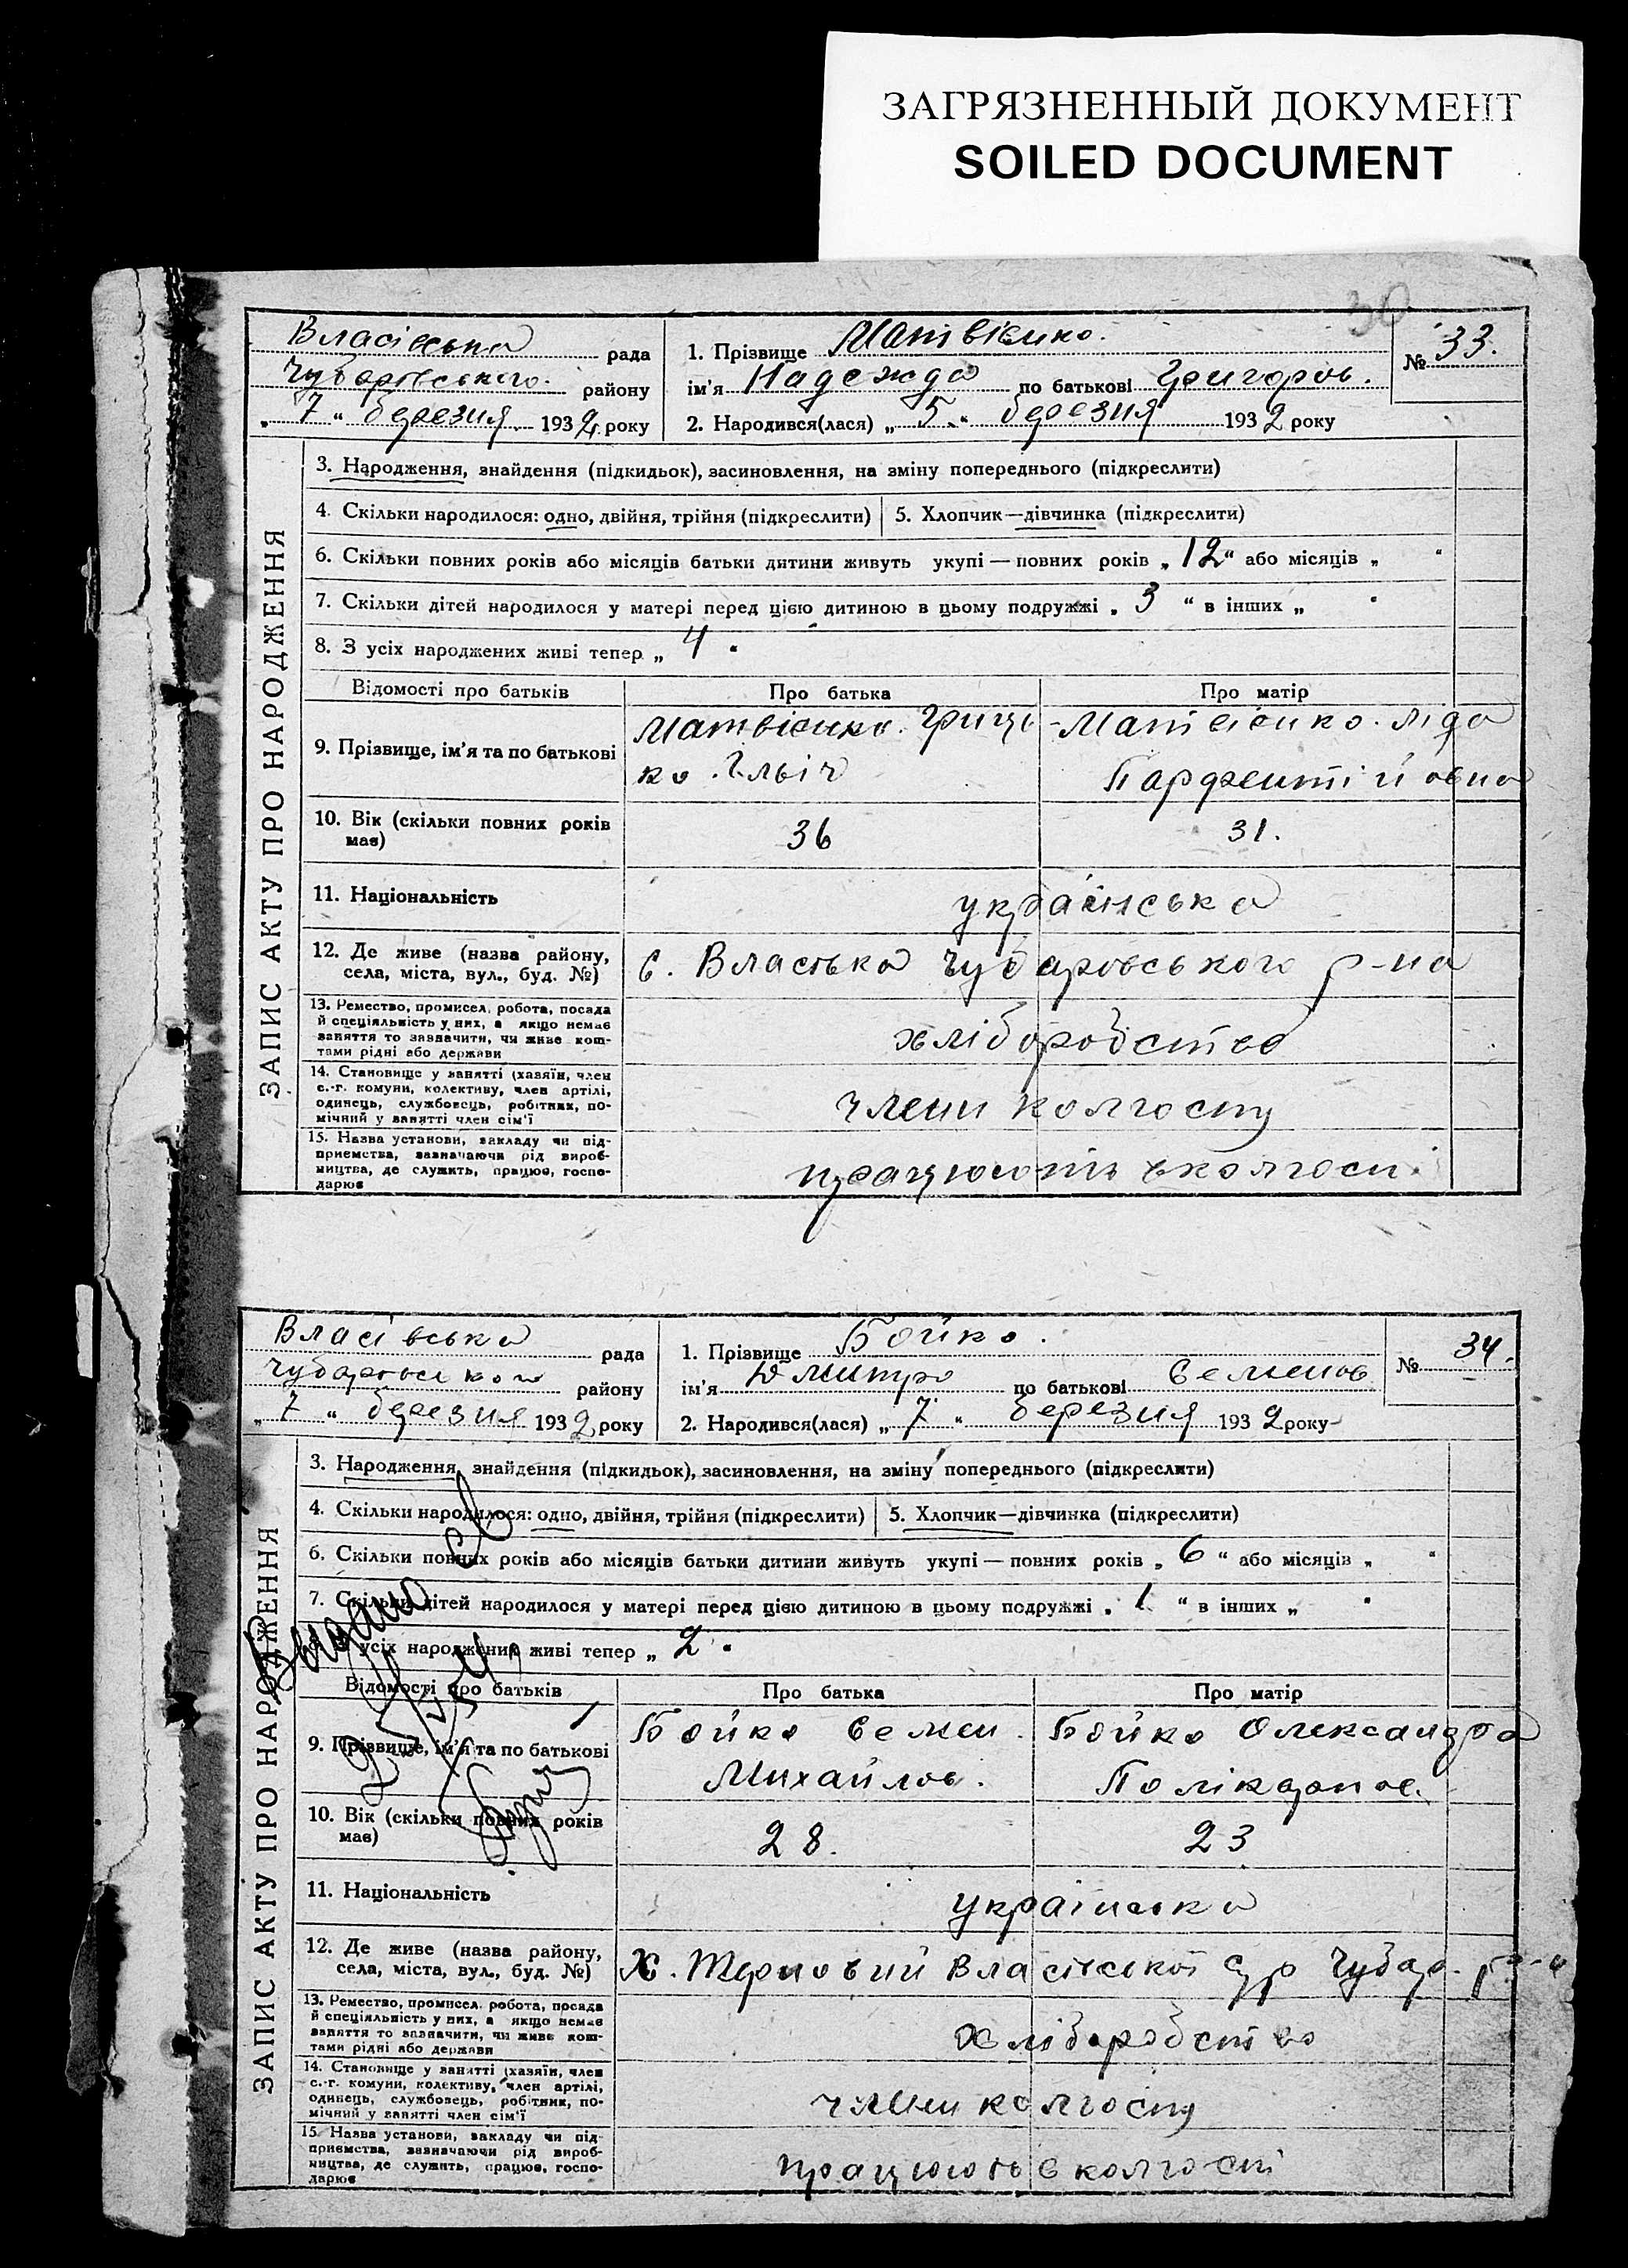 ЗАГРЯЗНЕННЫЙ ДОКУМЕНТ
SOILED DOCUMENT
30
Власівська рада
Чубарівського району
„ 7 “ березня 1932 року
1. Прізвище Матвієнко.
ім’я Надежда по батькові Григоров.
2. Народився(лася) „ 5 “ березня 1932 року
№ 33.
ЗАПИС АКТУ ПРО НАРОДЖЕННЯ
3. Народження, знайдення (підкидьок), засиновлення, на зміну попереднього (підкреслити)
4. Скільки народилося: одно, двійня, трійня (підкреслити) 5. Хлопчик—дівчинка (підкреслити)
6. Скільки повних років або місяців батьки дитини живуть укупі — повних років „ 12 “ або місяців „ “
7. Скільки дітей народилося у матері перед цією дитиною в цьому подружжі „ 3 “ в інших „ “
8. З усіх народжених живі тепер „ 4 “
Відомості про батьків Про батька Про матір
9. Прізвище, ім’я та по батькові
Матвієнко Грицько Ільіч
Матвієнко Ліда
10. Вік (скільки повних років має) 36 31.
11. Національність українська
12. Де живе (назва району, села, міста, вул., буд. №) с. Власівка Чубаровського р-на
13. Ремество, промисел, робота, посада
й спеціяльність у них, а якщо немає
заняття то зазначити, чи живе кош-
тами рідні або держави
хліборобство
14. Становище у занятті (хазяїн, член
с.-г. комуни, колективу, член артілі,
одинець, службовець, робітник, по-
мічний у занятті член сім’ї
члени колгоспу
15. Назва установи, закладу чи під-
приємства, зазначаючи рід вироб-
ництва, де служить, працює, госпо-
дарює
працюють в колгосп.
Власівська рада
району
„ 7 “ березня 1932 року
1. Прізвище Бойко.
ім’я Дмитро по батькові Семенов
2. Народився(лася) „ 7 “ березня 1932 року
№ 34.
ЗАПИС АКТУ ПРО НАРОДЖЕННЯ
3. Народження, знайдення (підкидьок), засиновлення, на зміну попереднього (підкреслити)
4. Скільки народилося: одно, двійня, трійня (підкреслити) 5. Хлопчик—дівчинка (підкреслити)
6. Скільки повних років або місяців батьки дитини живуть укупі — повних років „ 6 “ або місяців „ “
7. Скільки дітей народилося у матері перед цією дитиною в цьому подружжі „ 1 “ в інших „ “
8. З усіх народжених живі тепер „ 2 “
Відомості про батьків Про батька Про матір
9. Прізвище, ім’я та по батькові
Бойко Семен Михайлов.
Бойко Олександра Полікарпов.
10. Вік (скільки повних років має) 28. 23
11. Національність українська
12. Де живе (назва району, села, міста, вул., буд. №) Х. Терновий Власівської с/р Чубар. р-на
13. Ремество, промисел, робота, посада
й спеціяльність у них, а якщо немає
заняття то зазначити, чи живе кош-
тами рідні або держави
хліборобство
14. Становище у занятті (хазяїн, член
с.-г. комуни, колективу, член артілі,
одинець, службовець, робітник, по-
мічний у занятті член сім’ї
члени колгоспу
15. Назва установи, закладу чи під-
приємства, зазначаючи рід вироб-
ництва, де служить, працює, госпо-
дарює
працюють в колгоспі
Выдано